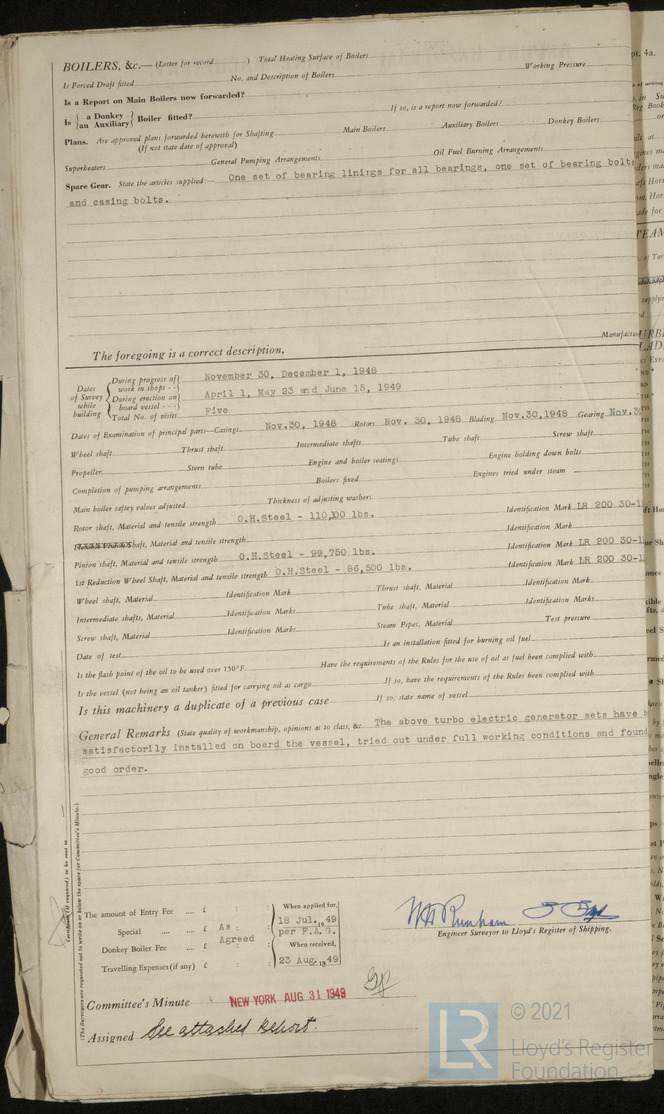 BOILERS, &c.— (Letter for record ) Total Heating Surface of Boilers
Is Forced Draft fitted No. and Description of Boilers Working Pressure
Is a Report on Main Boilers now forwarded?
Is { a Donkey / an Auxiliary } Boiler fitted? If so, is a report now forwarded?
Plans. Are approved plans forwarded herewith for Shafting Main Boilers Auxiliary Boilers Donkey Boilers
(If not state date of approval)
Superheaters General Pumping Arrangements Oil Fuel Burning Arrangements
Spare Gear. State the articles supplied:— One set of bearing linings for all bearings, one set of bearing bolts
and casing bolts.
The foregoing is a correct description,
Manufactur
Dates of Survey while building
During progress of work in shops - - November 30, December 1, 1948
During erection on board vessel - - - April 1, May 23 and June 15, 1949
Total No. of visits Five
Dates of Examination of principal parts—Casings Nov.30, 1948 Rotors Nov. 30, 1948 Blading Nov.30,1948 Gearing Nov.3
Wheel shaft Thrust shaft Intermediate shafts Tube shaft Screw shaft
Propeller Stern tube Engine and boiler seatings Engine holding down bolts
Completion of pumping arrangements Boilers fixed Engines tried under steam
Main boiler saftey valves adjusted Thickness of adjusting washers
Rotor shaft, Material and tensile strength O.H.Steel - 110,100 lbs. Identification Mark LR 200 30-1
Shaft, Material and tensile strength Identification Mark
Pinion shaft, Material and tensile strength O.H.Steel - 99,750 lbs. Identification Mark LR 200 30-1
1st Reduction Wheel Shaft, Material and tensile strength O.H.Steel - 86,500 lbs. Identification Mark LR 200 30-1
Wheel shaft, Material Identification Mark Thrust shaft, Material Identification Mark
Intermediate shafts, Material Identification Marks Tube shaft, Material Identification Marks
Screw shaft, Material Identification Marks Steam Pipes, Material Test pressure
Date of test Is an installation fitted for burning oil fuel
Is the flash point of the oil to be used over 150°F. Have the requirements of the Rules for the use of oil as fuel been complied with
Is the vessel (not being an oil tanker) fitted for carrying oil as cargo If so, have the requirements of the Rules been complied with
Is this machinery a duplicate of a previous case If so, state name of vessel
General Remarks (State quality of workmanship, opinions as to class, &c. The above turbo electric generator sets have b
satisfactorily installed on board the vessel, tried out under full working conditions and found
good order.
Certificate (if required) to be sent to
(The Surveyors are requested not to write on or below the space for Committee's Minute.)
The amount of Entry Fee .... £ : : When applied for,
18 Jul. 19 49
Special .... .... £ As : per F.A.G.
Donkey Boiler Fee .... £ Agreed When received,
Travelling Expenses (if any) £ : : 23 Aug. 19 49
Engineer Surveyor to Lloyd's Register of Shipping.
Committee's Minute NEW YORK AUG 31 1949
Assigned See attached Report.
© 2021
LR
Lloyd's Register
Foundation